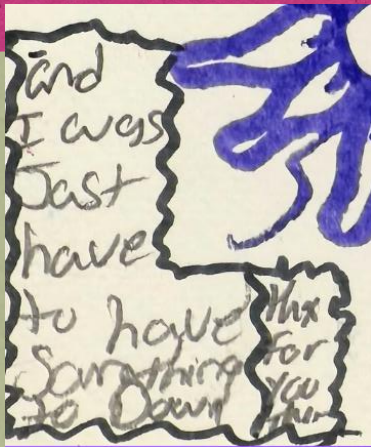 and
I cugs
Jast
have
to have
Somthing
to Down
thx
for
you